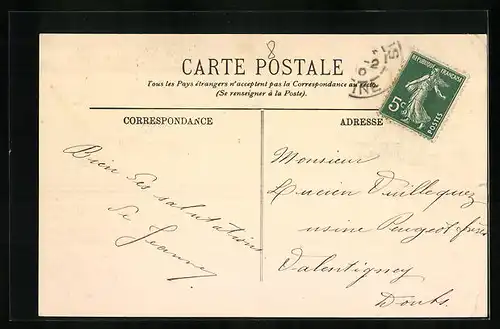 8
CARTE POSTALE
Tous les Pays étrangers n'acceptent pas la Correspondance au recto.
(Se renseigner à la Poste).
CORRESPONDANCE
ADRESSE
REPUBLIQUE FRANÇAISE
5c
POSTES
Bien des salutations
de Jeanne
Monsieur
Lucien
usine Peugeot frères
Valentigney
Doubs.